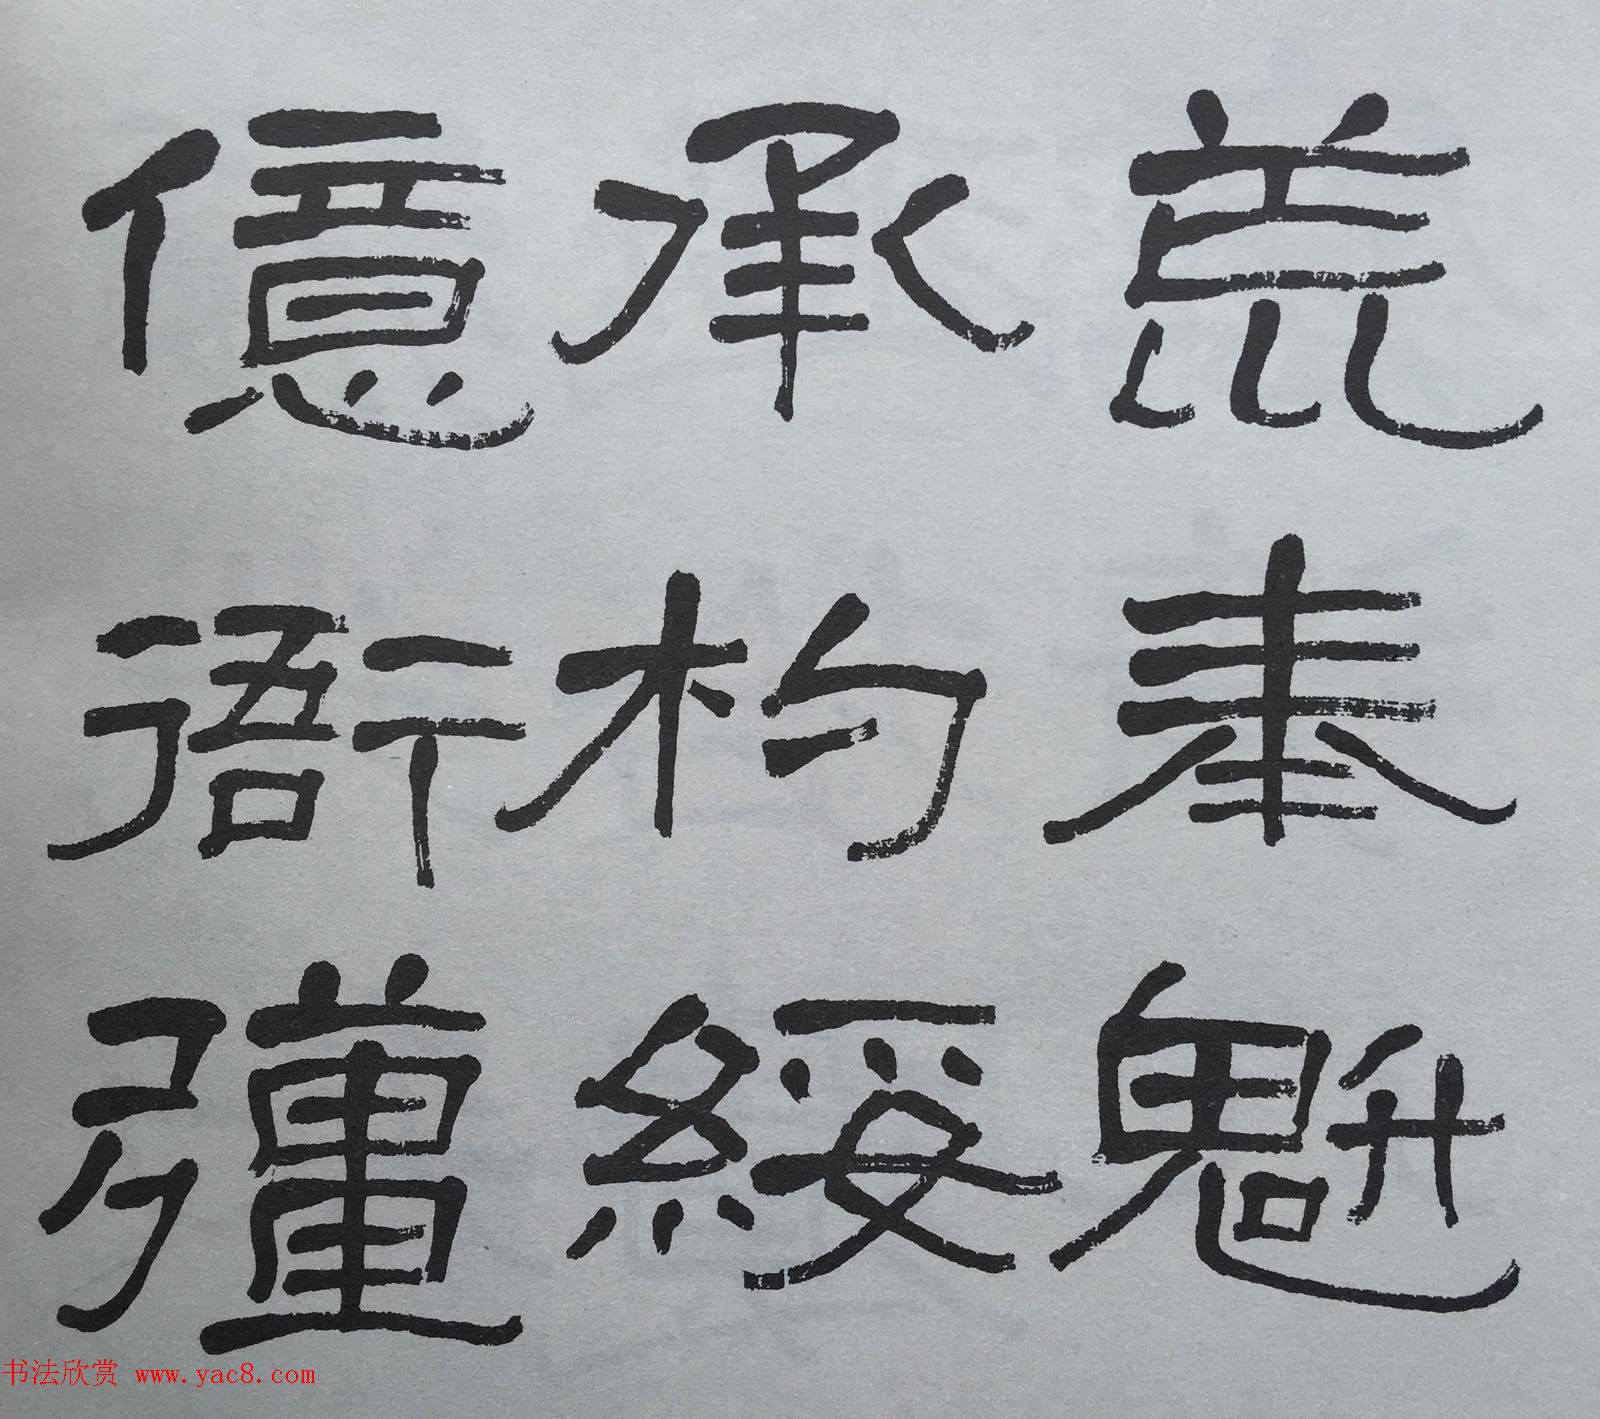 荒奉魁
承杓綏
億衙彊
书法欣赏 www.yac8.com